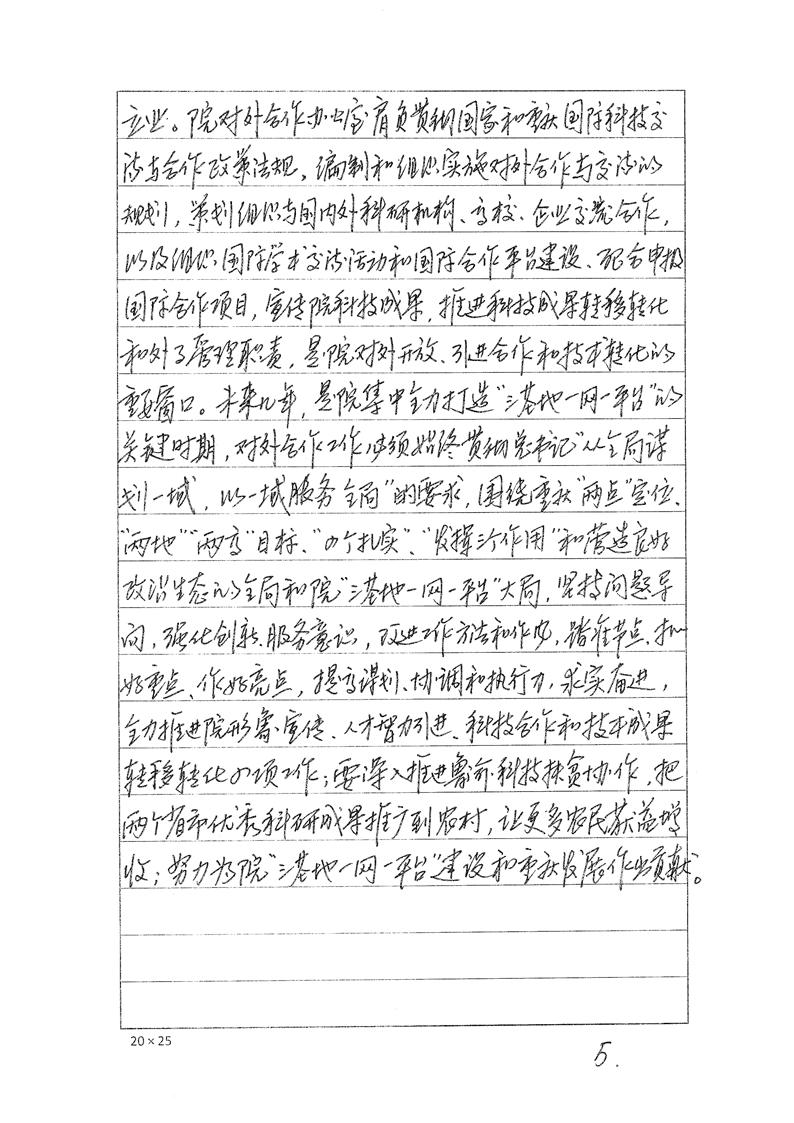 立业。院对外合作办公室肩负贯彻国家和重庆国际科技交
流与合作政策法规，编制和组织实施对外合作与交流的
规划，策划组织与国内外科研机构、高校、企业交流合作，
以及组织国际学术交流活动和国际合作平台建设、配合申报
国际合作项目，宣传院科技成果，推进科技成果转移转化
和外事管理职责，是院对外开放、引进合作和技术转化的
重要窗口。未来几年，是院集中全力打造“三基地一网一平台”的
关键时期，对外合作工作必须始终贯彻总书记“从全局谋
划一域，以一域服务全局”的要求，围绕重庆“两点”定位、
“两地”“两高”目标、“四个扎实”、“发挥三个作用”和营造良好
政治生态的全局和院“三基地一网一平台”大局，坚持问题导
向，强化创新、服务意识，改进工作方法和作风，踏准节点、抓
好重点、作好亮点，提高谋划、协调和执行力，求实奋进，
全力推进院形象宣传、人才智力引进、科技合作和技术成果
转移转化四项工作；要深入推进鲁渝科技扶贫协作，把
两个省市优秀科研成果推广到农村，让更多农民获益增
收；努力为院“三基地一网一平台”建设和重庆发展作出贡献。
20×25
5.